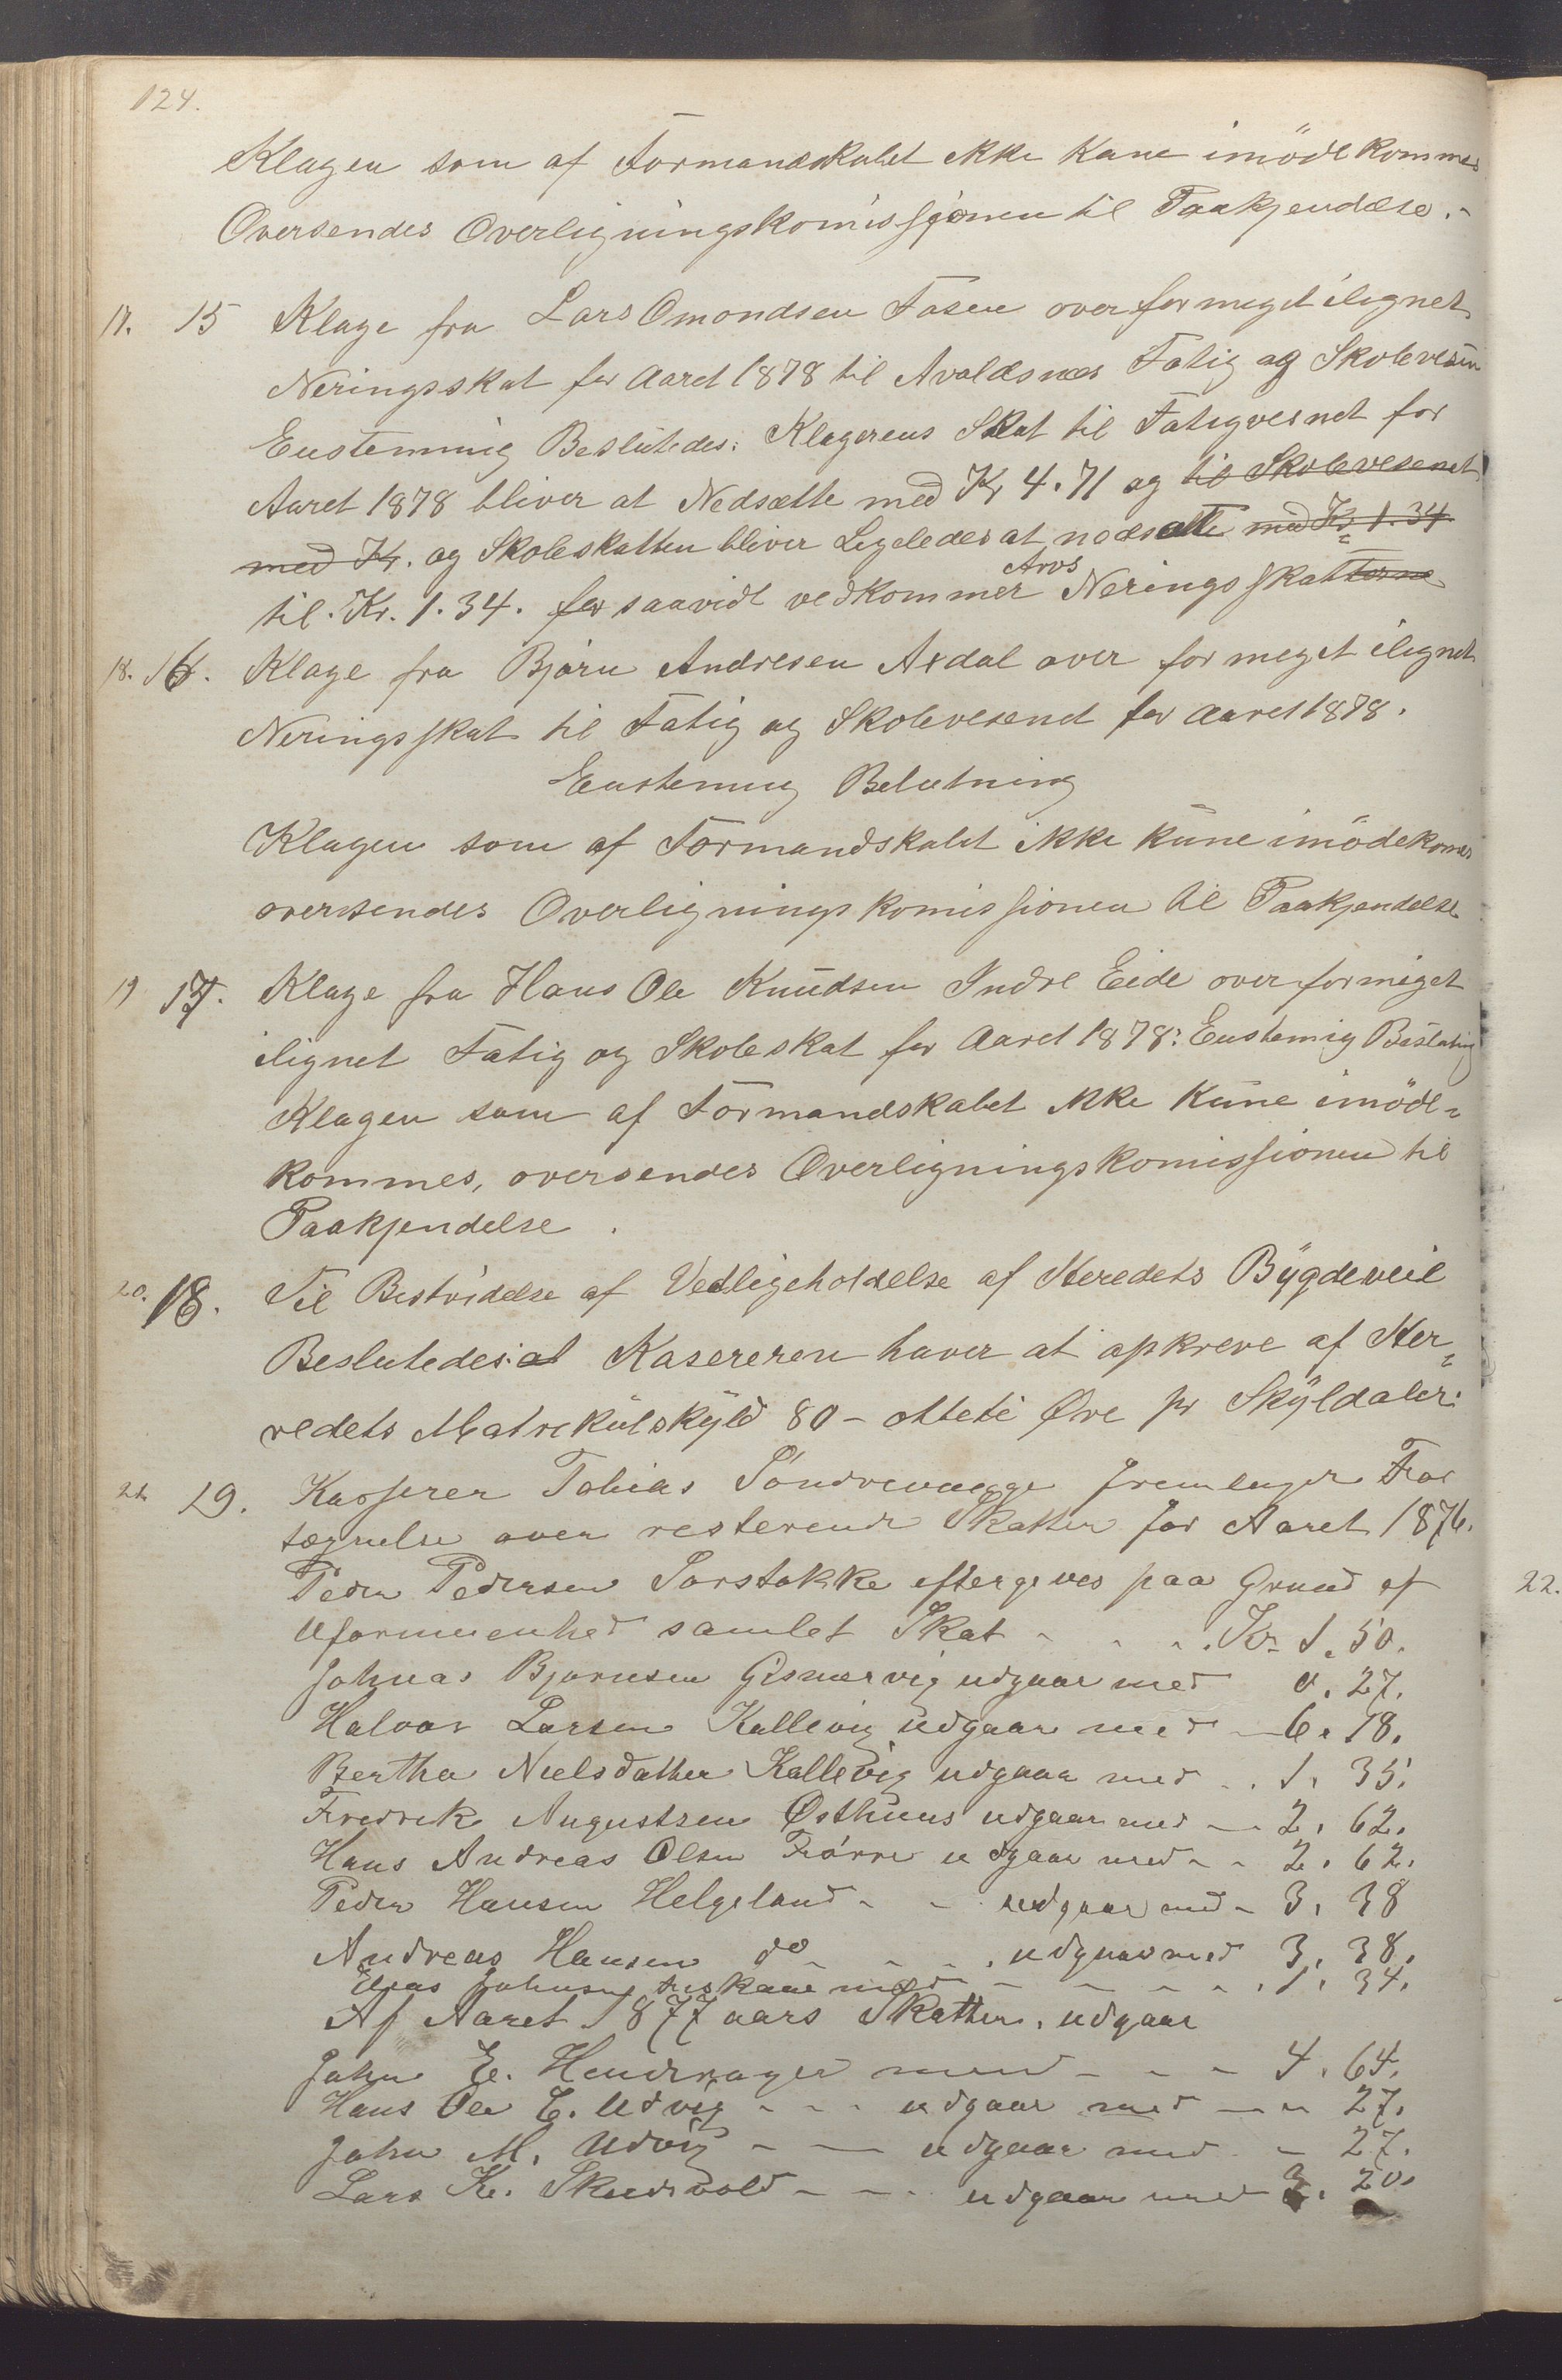 124.
Klagen som af Formandskabet ikke Kune imödekommes
Oversendes Overligningskomissjonen til Paakjendelse.-
17. 15 Klage fra Lars Omondsen Fosen over for meget ilignet
Neringsskat for Aaret 1878 til Avaldsnes Fatig og Skolevesen
Enstemmig Beslutedes: Klagerens Skat til Fatigvesnet for
Aaret 1878 bliver at Nedsætte med Kr 4.71 og til Skolevesenet
med Kr. og Skoleskatten bliver Ligeledes at nedsatte med Kr 1.34
til. Kr. 1.34. for saavidt vedkommer Arvs Neringsskatterne
18. 16. Klage fra Bjørn Andresen Axdal over for meget ilignet
Neringsskat til Fatig og Skolevesenet for Aaret 1878.
Enstemig Belutning
Klagen som af Formandskabet ikke Kune imödekomes
oversendes Overligningskomissionen til Paakjendelse
19 17. Klage fra Hans Ole Knudsen Indre Eide over for meget
ilignet Fatig og Skoleskat for Aaret 1878: Enstemig Beslutnig
Klagen som af Formandskabet ikke Kune imöde-
kommes, oversendes Overligningskomissionen til
Paakjendelse.
20. 18. Til Bestridelse af Vedligeholdelse af Heredets Bygdeveie
Beslutedes: at Kasereren haver at opkreve af Her-
redets Matrikulskyld 80 - otteti Øre pr Skyldaler:
21. 19. Kasserer Tobias Søndrevaagge fremlæger For
tegnelse over resterende Skatter for Aaret 1876.
Peder Pedersen Sørstokke eftergives paa Grund af
Uformuenhed samlet Skat - - - Kr 1.50.
Johnas Bjørnsen Gismervig udgaar med 0.27.
Halvar Larsen Kallevig udgaar med - 6.18.
Bertha Nielsdatter Kallevig udgaar med - . 1.35.
Fredrik Augustsen Østhuus udgaar med - 2.62.
Hans Andreas Olsen Førre udgaar med - - 2.62.
Peder Hansen Helgeland - - udgaar med - 3.38
Andreas Hansen do - - - udgaar med 3.38.
Elias Johnsen med - - - - 1.34.
Af Aaret 1877 aars Skatter. udgaar
John E. med - - - 4.64.
Hans Ole E. Udvig - - - udgaar med - " 27.
John M. Udvig - - udgaar med - 27.
Lars Kr. Skeisvold - - - udgaar med 3.20.
22.